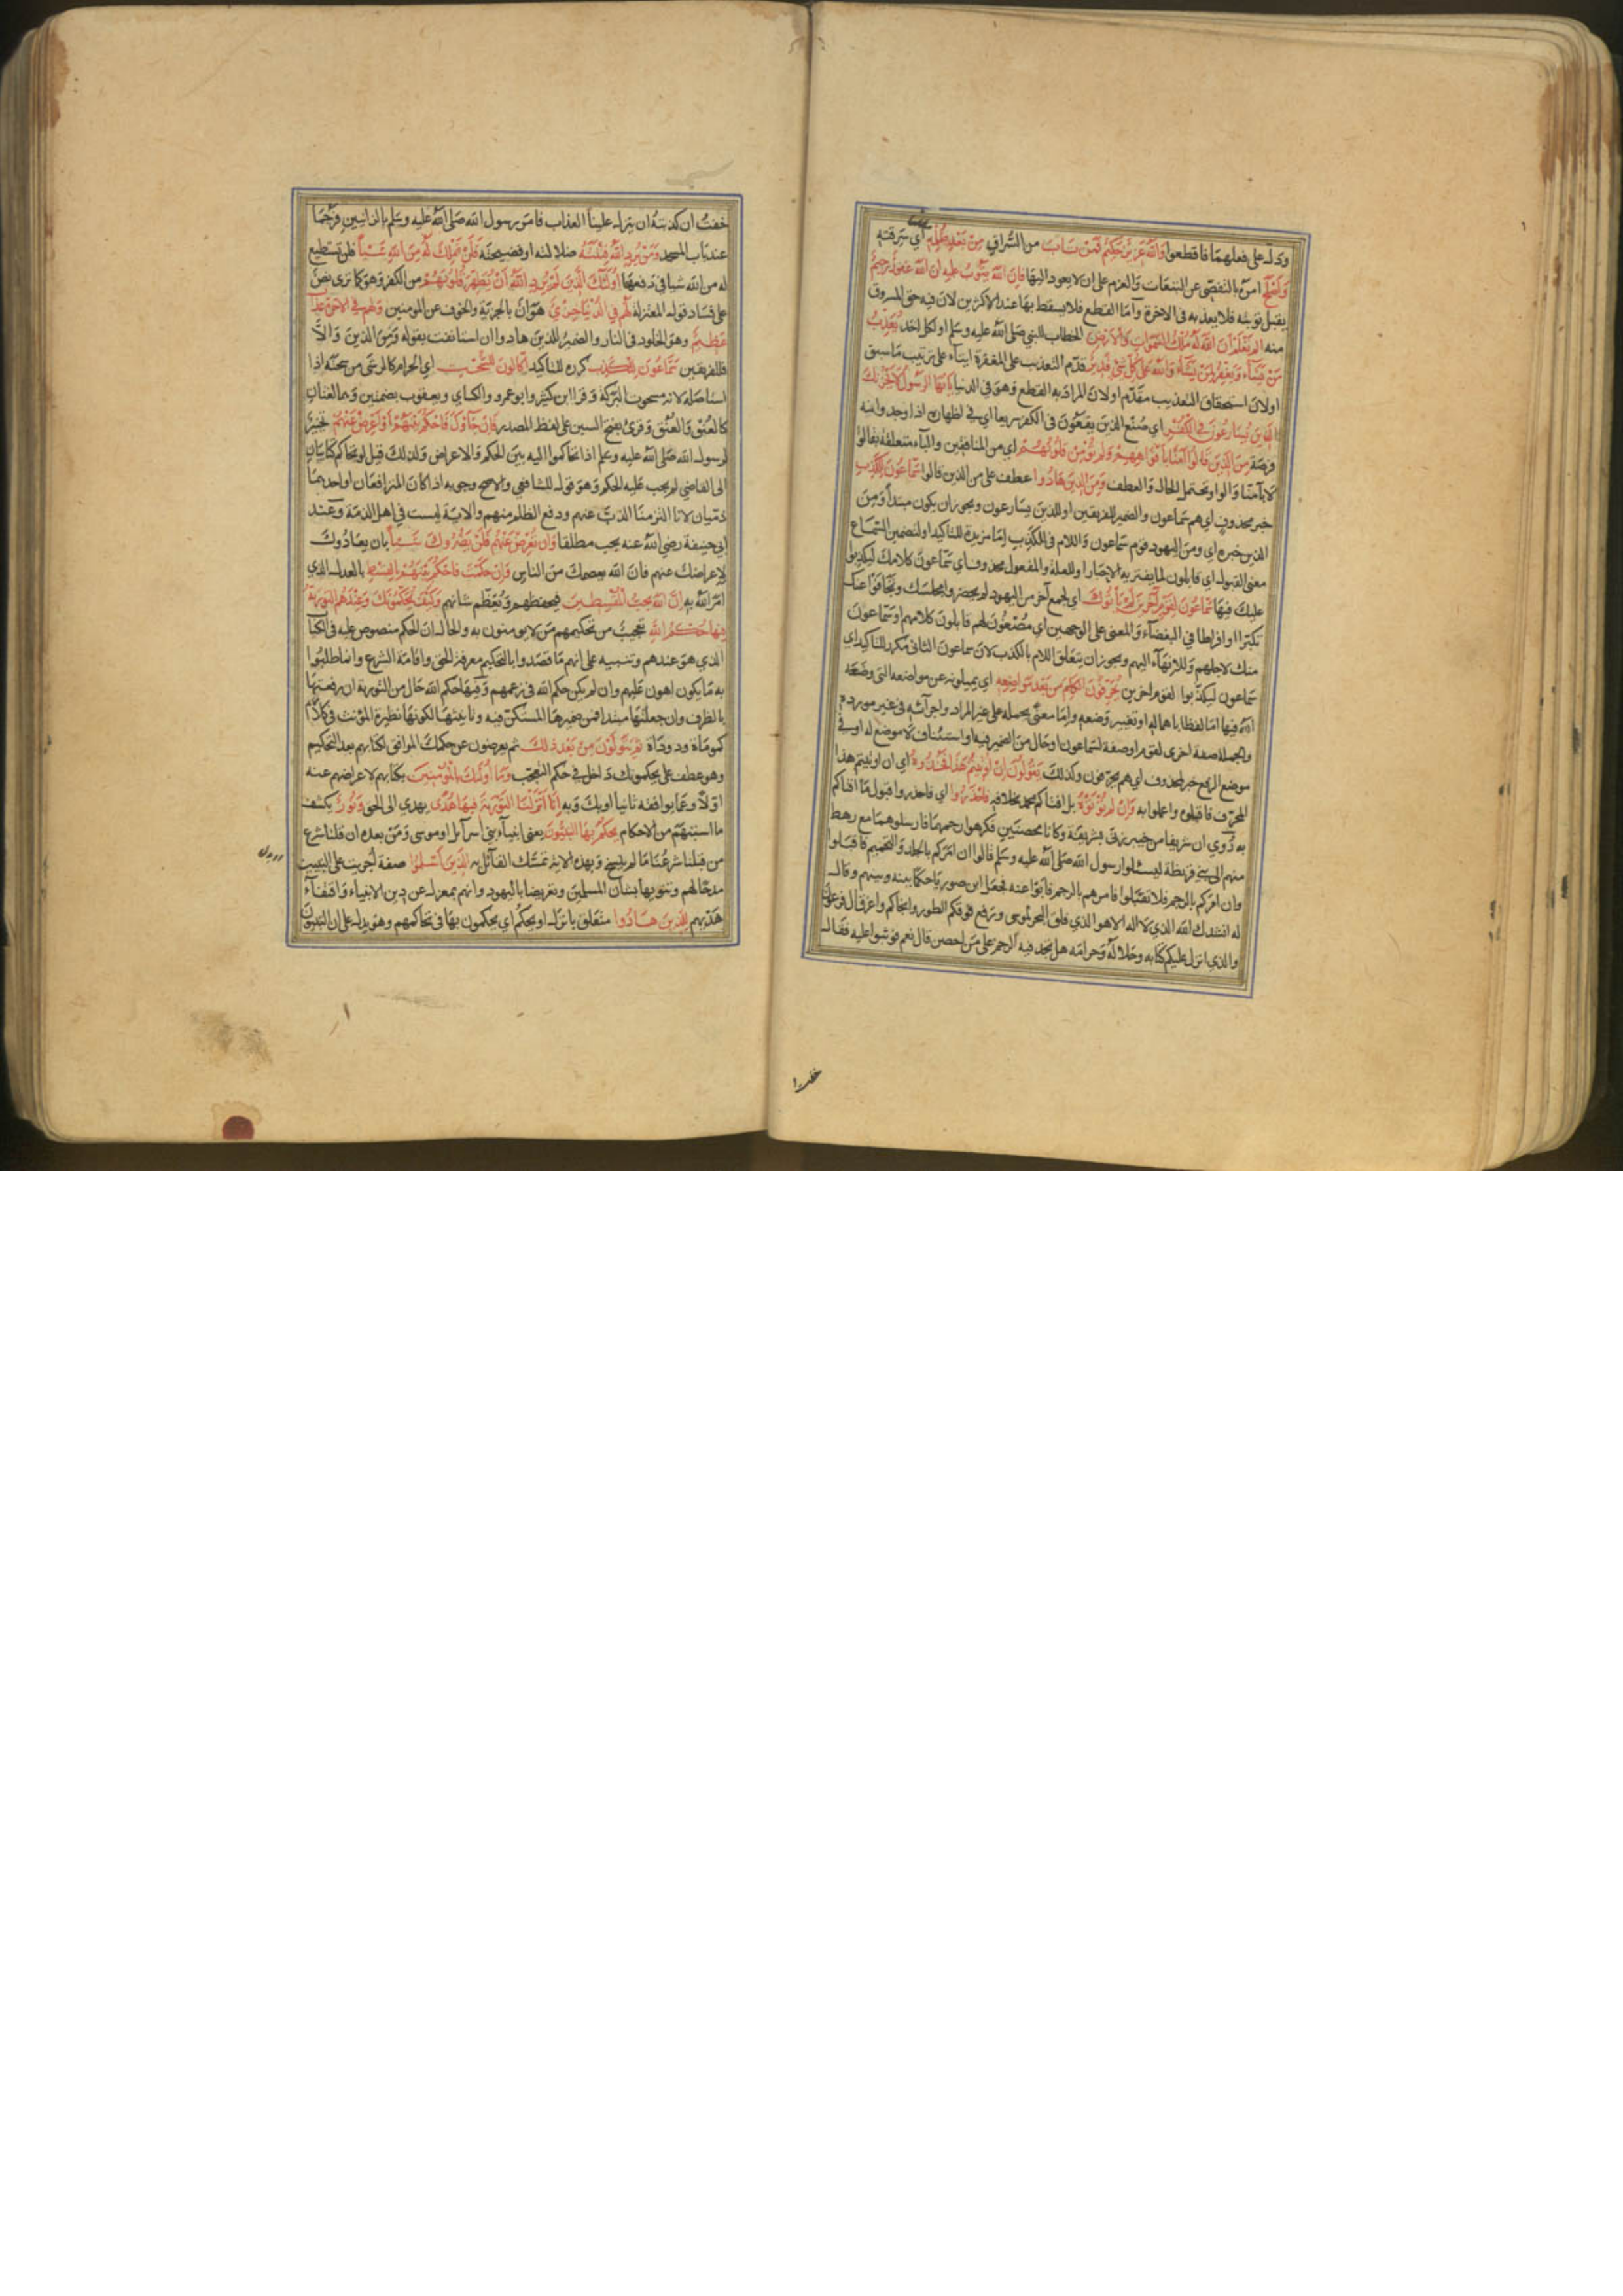 ودل على فعلهما فاقطعوا والله عزيز حكيم فمن تاب من السراق من بعد ظلمه اي سرقته
واصلح امره بالتفصي عن التبعات والعزم على ان لا يعود اليها فان الله يتوب عليه ان الله غفور رحيم
يقبل توبته فلا يعذبه فى الاخرة واما القطع فلا يسقط بها عند الاكثرين لان فيه حق المسروق
منه الم تعلم ان الله له ملك السموات والارض الخطاب للنبي صلى الله عليه وسلم او لكل احد يعذب
من يشاء ويغفر لمن يشاء والله على كل شئ قدير قدم التعذيب على المغفرة ايتاء على ترتيب ما سبق
اولان استحقاق التعذيب مقدم اولان المراد به القطع وهو فى الدنيا يا ايها الرسول لا يحزنك
الذين يسارعون فى الكفر اي صنع الذين يقعون فى الكفر سريعا اي فى اظهاره اذا وجدوا منه
فرصة من الذين قالوا آمنا بافواههم ولم تؤمن قلوبهم اي من المنافقين والباء متعلقة بقالوا
لا بآمنا والواو تحتمل الحال والعطف ومن الذين هادوا عطف على من الذين قالوا سماعون للكذب
خبر محذوف اي هم سماعون والضمير للفريقين او للذين يسارعون ويجوز ان يكون مبتدأ ومن
الذين خبره اي ومن اليهود قوم سماعون واللام فى للكذب اما مزيدة للتاكيد او لتضمين السماع
معنى القبول اي قابلون لما يفتريه الاحبار او للعلة والمفعول محذوف اي سماعون كلامك ليكذبوا
عليك فيها سماعون لقوم آخرين لم يأتوك اي لجمع آخر من اليهود لم يحضروا مجلسك وتجافوا عنك
تكبرا او افراطا في البغضاء والمعنى على الوجهين اي مصغون لهم قابلون كلامهم او سماعون
منك لاجلهم وللانهاء اليهم ويجوز ان يتعلق اللام بالكذب لان سماعون الثانى مكرر للتاكيد اي
سماعون ليكذبوا لقوم اخرين يحرفون الكلم من بعد مواضعه اي يميلونه عن مواضعه التى وضعه
الله فيها اما لفظا باهماله او تغيير وضعه واما معنى بحمله على غير المراد واجرائه فى غير مورده
والجملة صفة اخرى لقوم او صفة لسماعون او حال من الضمير فيه او استئناف لا موضع له او فى
موضع الرفع خبر لمحذوف اي هم يحرفون وكذلك يقولون ان اوتيتم هذا فخذوه اي ان اوتيتم هذا
المحرف فاقبلوه واعملوا به وان لم تؤتوه بل افتاكم محمد بخلافه فاحذروا اي فاحذروا قبول ما افتاكم
به روي ان شريفا من خيبر زنى بشريفة وكانا محصنين فكرهوا رجمهما فارسلوهما مع رهط
منهم الى بني قريظة ليسئلوا رسول الله صلى الله عليه وسلم قالوا ان امركم بالجلد والتحميم فاقبلوا
وان امركم بالرجم فلا تقبلوا فامرهم بالرجم فابوا عنه فجعل ابن صوريا حكما بينه وبينهم وقال
له انشدك الله الذي لا اله الا هو الذي فلق البحر لموسى ورفع فوقكم الطور وانجاكم واغرق آل فرعون
والذي انزل عليكم كتابه وحلاله وحرامه هل تجد فيه الرجم على من احصن قال نعم فوثبوا عليه فقال
خفت
خفت ان كذبته ان ينزل علينا العذاب فامر رسول الله صلى الله عليه وسلم بالزانيين فرجما
عند باب المسجد ومن يرد الله فتنته ضلالته او فضيحته فلن تملك له من الله شيئا فلن تستطيع
له من الله شيا فى دفعها اولئك الذين لم يرد الله ان يطهر قلوبهم من الكفر وهو كما ترى نص
على فساد قول المعتزلة لهم في الدنيا خزي هوان بالجزية والخوف عن المومنين ولهم في الاخرة عذاب
عظيم وهو الخلود فى النار والضمير للذين هادوا ان استانفت بقوله ومن الذين والا
فللفريقين سماعون للكذب كرره للتاكيد اكالون للسحت اي الحرام كالرشى من سحته اذا
استاصله لانه مسحوت البركة وقرا ابن كثير وابو عمرو والكساي ويعقوب بضمتين وهما لغتان
كالعنق والعنق وقرئ بفتح السين على لفظ المصدر فان جاؤك فاحكم بينهم او اعرض عنهم تخيير
لرسول الله صلى الله عليه وسلم اذا تحاكموا اليه بين الحكم والاعراض ولذلك قيل لو تحاكم كتابيان
الى القاضي لم يجب عليه الحكم وهو قول للشافعي والاصح وجوبه اذا كان المترافعان او احدهما
ذميان لانا التزمنا الذب عنهم ودفع الظلم منهم والاية ليست فى اهل الذمة وعند
ابي حنيفة رضي الله عنه يجب مطلقا وان تعرض عنهم فلن يضروك شيئا بان يعادوك
لاعراضك عنهم فان الله يعصمك من الناس وان حكمت فاحكم بينهم بالقسط بالعدل الذي
امر الله به ان الله يحب المقسطين فيحفظهم ويعظم شانهم وكيف يحكمونك وعندهم التورية
فيها حكم الله تعجيب من تحكيمهم من لا يومنون به والحال ان الحكم منصوص عليه فى الكتاب
الذي هو عندهم وتنبيه على انهم ما قصدوا بالتحكيم معرفة الحق واقامة الشرع وانما طلبوا
به ما يكون اهون عليهم وان لم يكن حكم الله فى زعمهم وفيها حكم الله حال من التورية ان رفعتها
بالظرف وان جعلتها مبتدا فمن ضميرها المستكن فيه وتانيثها لكونها نظيرة المؤنث فى كلامهم
كموماة ودوداة ثم يتولون من بعد ذلك ثم يعرضون عن حكمك الموافق لكتابهم بعد التحكيم
وهو عطف على يحكمونك داخل فى حكم التعجيب وما اولئك بالمؤمنين بكتابهم لاعراضهم عنه
اولا وعما يوافقه ثانيا او بك وبه انا انزلنا التورية فيها هدى يهدي الى الحق ونور يكشف
ما استبهم من الاحكام يحكم بها النبيون يعنى انبياء بنى اسرآئل او موسى ومن بعده ان قلنا شرع
من قبلنا شرع لنا ما لم ينسخ وبهذه الاية تمسك القائل به الذين اسلموا صفة اجريت على النبيين
مدحا لهم وتنويها بشان المسلمين وتعريضا باليهود وانهم بمعزل عن دين الانبياء واقتفاء
هديهم للذين هادوا متعلق بانزل او بيحكم اي يحكمون بها فى تحاكمهم وهو يدل على ان النبيين